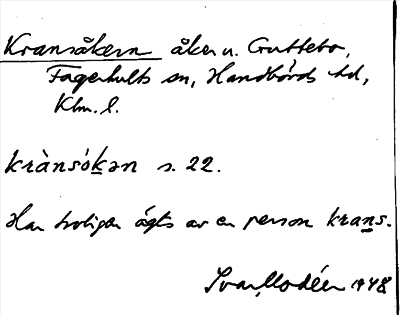 Kransåkern åker u. Guttebo,
Fagerhults sn, Handbörds hd,
Klm. l.
krànsòkən s. 22.
Har troligen ägts av en person krans.
Ivar Modéer 1948